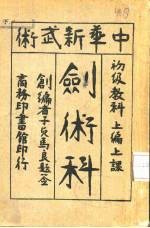 中華新武術
初級教科 上編上課
劍術科
創編者子貞馬良題
商務印書館印行